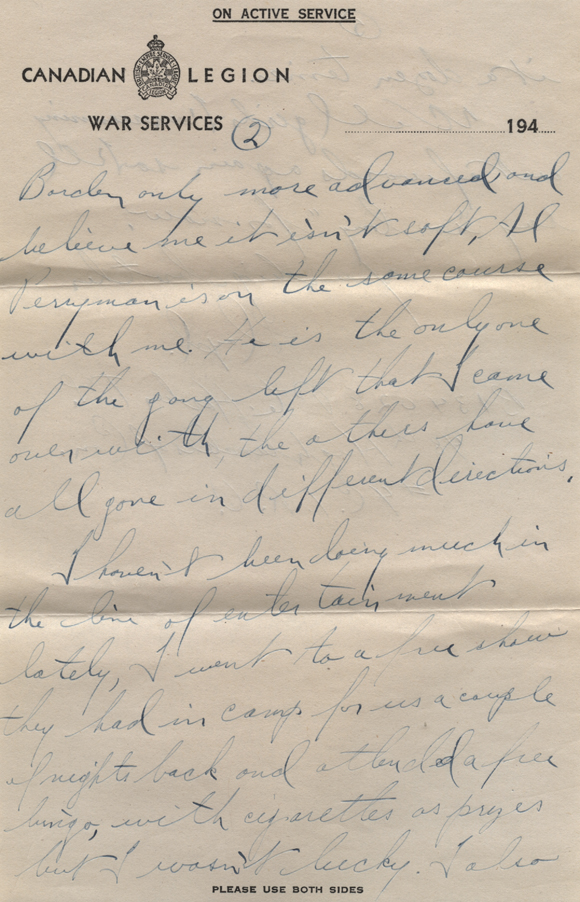 ON ACTIVE SERVICE
CANADIAN LEGION
WAR SERVICES (2) 194
Borden only more advanced and
believe me it isn't soft, Al
Perryman is on the same course
with me. He is the only one
of the gang left that I came
over with, the others have
all gone in different directions.
I haven't been doing much in
the line of entertainment
lately, I went to a free show
they had in camp for us a couple
of nights back and attended a free
bingo, with cigarettes as prizes
but I wasn't lucky. I also
PLEASE USE BOTH SIDES